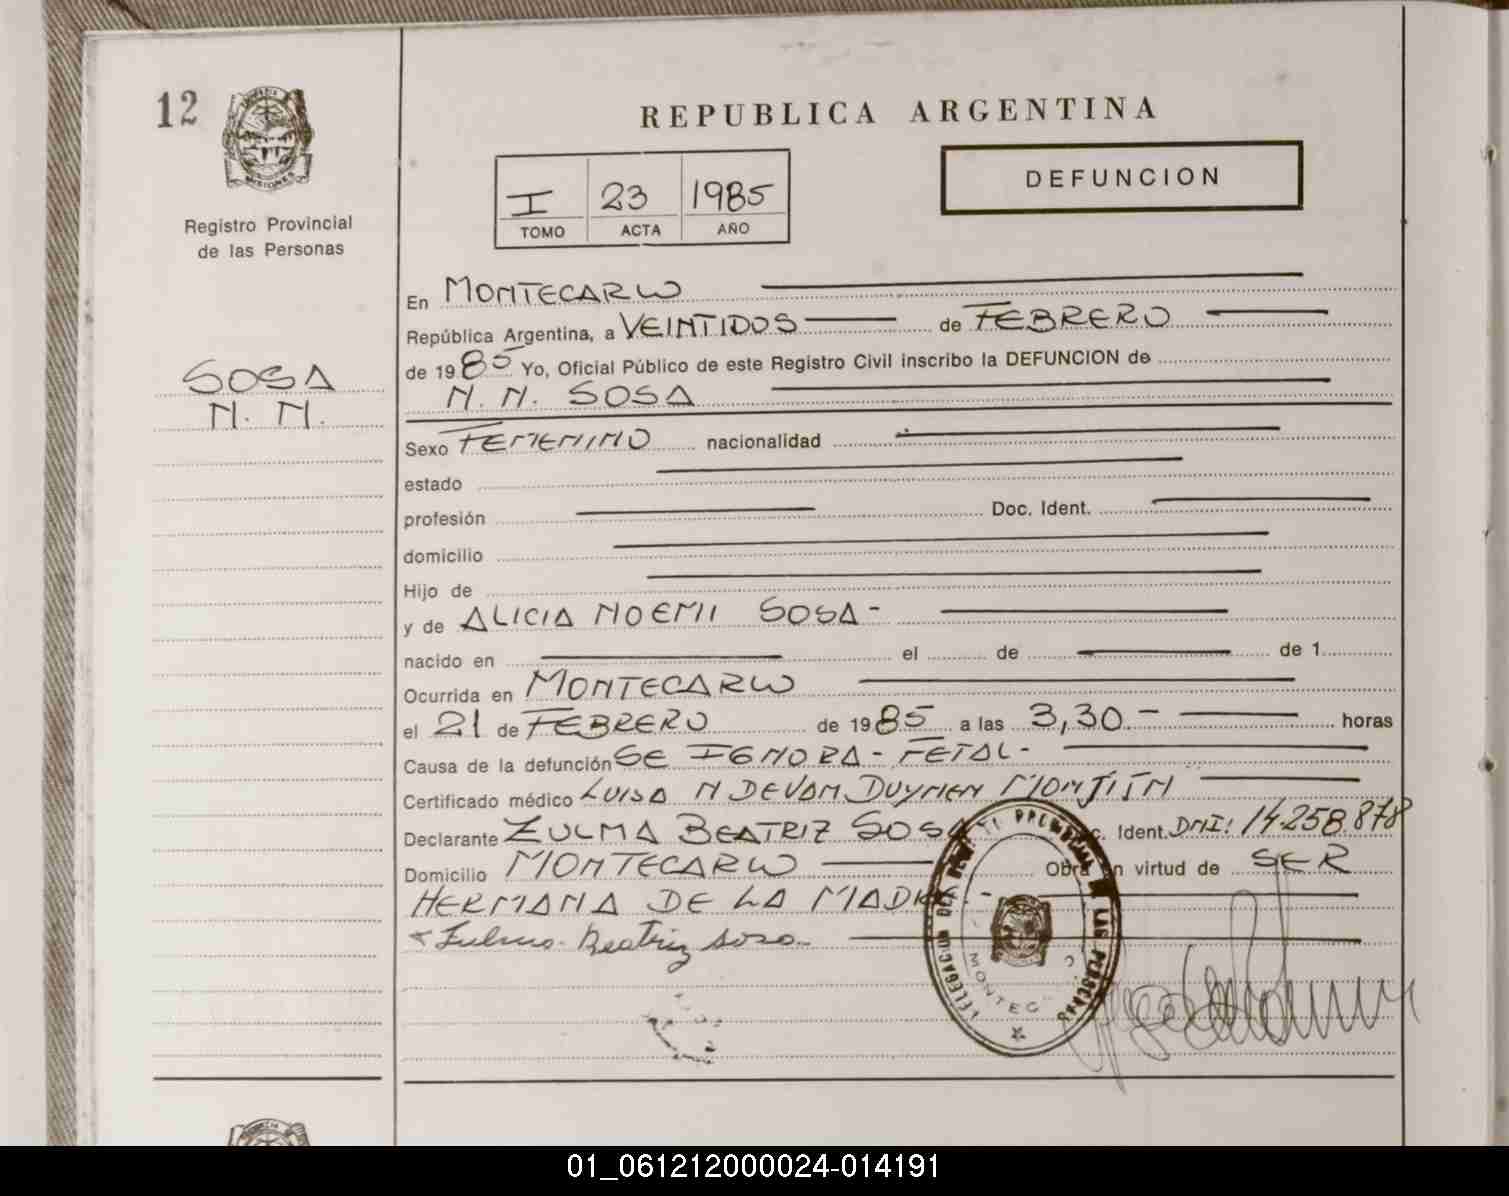 12
MISIONES
Registro Provincial
de las Personas
REPUBLICA ARGENTINA
I 23 1985
TOMO ACTA AÑO
DEFUNCION
SOSA
N. N.
En MONTECARLO
República Argentina, a VEINTIDOS de FEBRERO
de 1985 Yo, Oficial Público de este Registro Civil inscribo la DEFUNCION de
N. N. SOSA
Sexo FEMENINO nacionalidad
estado
profesión Doc. Ident.
domicilio
Hijo de
y de ALICIA NOEMI SOSA-
nacido en el de de 1
Ocurrida en MONTECARLO
el 21 de FEBRERO de 1985 a las 3,30.- horas
Causa de la defunción SE IGNORA - FETAL -
Certificado médico LUISA N DE VAN DUYNEN
Declarante ZULMA BEATRIZ SOSA c. Ident. DNI: 14.258.878
Domicilio MONTECARLO Obra en virtud de SER
HERMANA DE LA MADRE.-
Zulma Beatriz Sosa
MONTEC
01_061212000024-014191